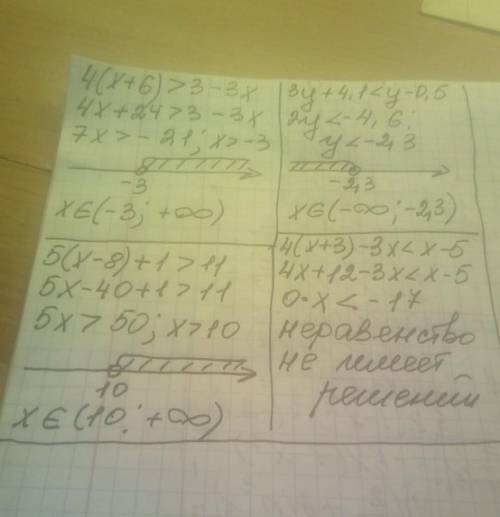 4(x+6)>3-3x
4x+24>3-3x
7x>-21; x>-3
-3
x∈(-3; +∞)
3y+4,1<y-0,5
2y<-4,6;
y<-2,3
-2,3
x∈(-∞; -2,3)
5(x-8)+1>11
5x-40+1>11
5x>50; x>10
10
x∈(10; +∞)
4(x+3)-3x<x-5
4x+12-3x<x-5
0·x<-17
неравенство
не имеет
решений